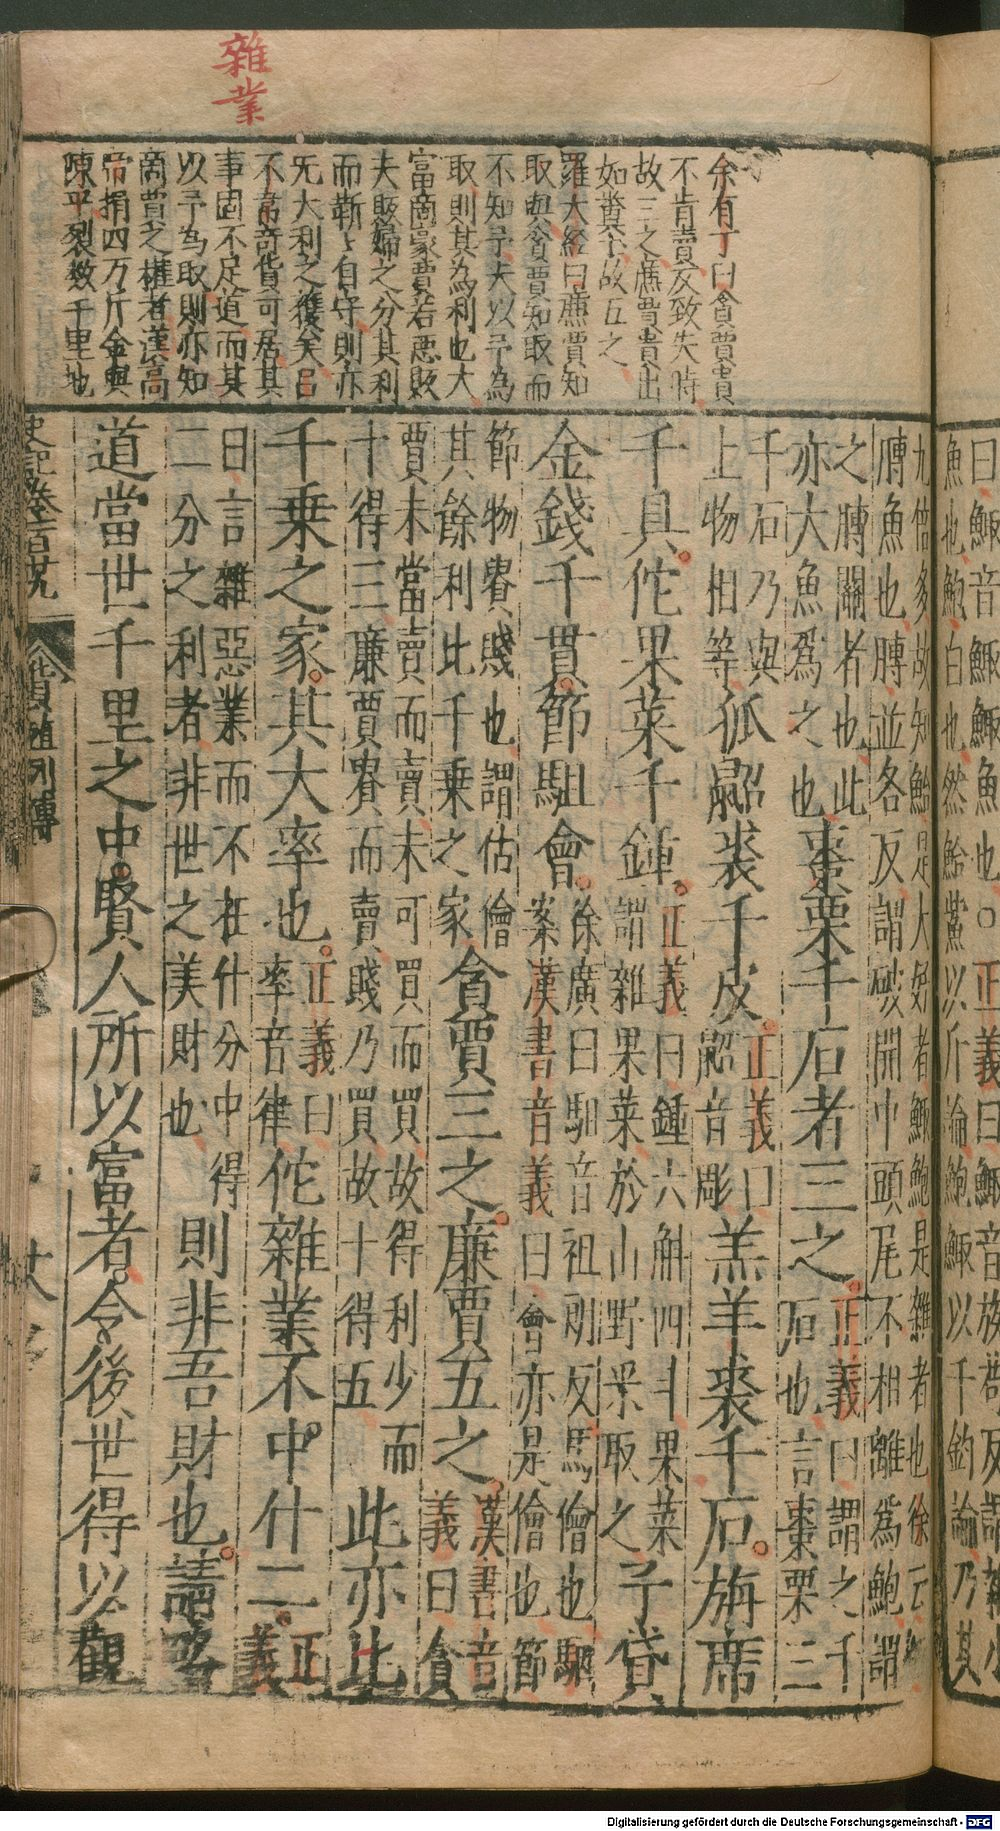 雜業
余有丁曰貪賈貴
不肯賣反致失時
故三之廉賈貴出
如糞土故五之
羅大經曰廉賈知
取與貪賈知取而
不知予夫以予為
取則其為利也大
富商豪賈若惡販
夫販婦之分其利
而靳〻自守則亦
旡大利之獲矣呂
不韋竒貨可居其
事固不足道而其
以予為取則亦知
商賈之權者漢髙
帝捐四万斤金與
陳平裂数千里地
曰鯫音鯫鯫魚也○正義曰鯫音族苟反謂雜小
魚也鮑白也然鮐鮆以斤論鮑鯫以千鈞論乃其
九倍多故知鮐是大好者鯫鮑是雜者也徐云
膊魚也膊並各反謂破開中頭尾不相離爲鮑謂
之膊關者也此
亦大魚爲之也
棗栗千石者三之
正義曰謂之千
石也言棗栗三
千石乃與
上物相等
狐鼦裘千皮
正義曰
鼦音彫
羔羊裘千石旃席
千具佗果菜千鍾
正義曰鍾六斛四斗果菜
謂雜果菜於山野采取之
子貸
金錢千貫節駔會
徐廣曰駔音祖朗反馬儈也駰
案漢書音義曰會亦是儈也節
節物貴賤也謂估儈
其餘利比千乘之家
貪賈三之廉賈五之
漢書音
義曰貪
賈未當賣而賣未可買而買故得利少而
十得三廉賈貴而賣賤乃買故十得五
此亦比
千乘之家其大率也
正義曰
率音律
佗雜業不中什二
正
義
曰言雜惡業而不在什分中得
二分之利者非世之美財也
則非吾財也請略
道當世千里之中賢人所以富者令後世得以觀
史記卷一百廿九 貨殖列傳
Digitalisierung gefördert durch die Deutsche Forschungsgemeinschaft - DFG